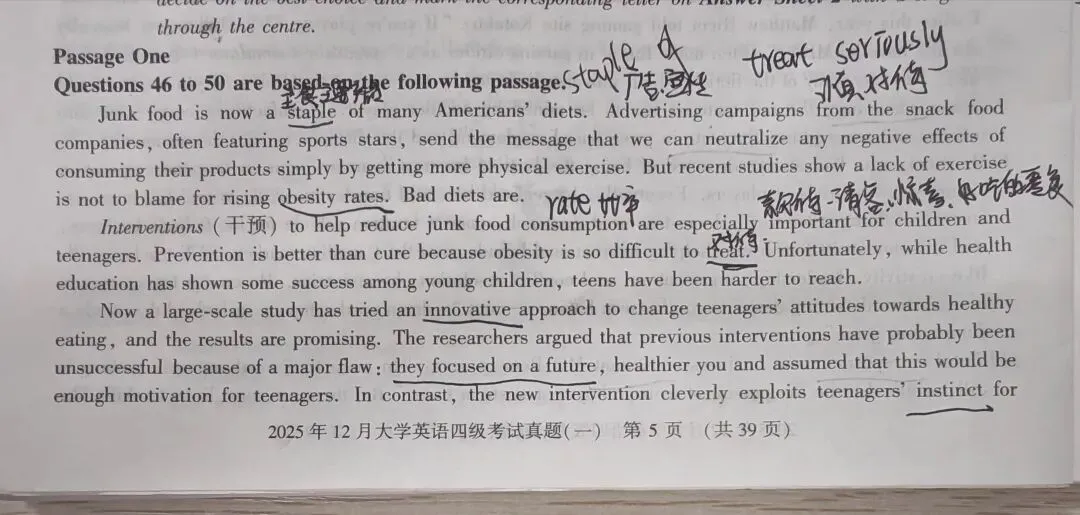 decide on the best choice and mark the corresponding letter on Answer Sheet 2 with a
through the centre.
Passage One
staple of
treat seriously
Questions 46 to 50 are based on the following passage.
认真对待
Junk food is now a staple of many Americans' diets. Advertising campaigns from the snack food
companies, often featuring sports stars, send the message that we can neutralize any negative effects of
consuming their products simply by getting more physical exercise. But recent studies show a lack of exercise
is not to blame for rising obesity rates. Bad diets are.
rate 比率
Interventions (干预) to help reduce junk food consumption are especially important for children and
对待
teenagers. Prevention is better than cure because obesity is so difficult to treat. Unfortunately, while health
education has shown some success among young children, teens have been harder to reach.
Now a large-scale study has tried an innovative approach to change teenagers' attitudes towards healthy
eating, and the results are promising. The researchers argued that previous interventions have probably been
unsuccessful because of a major flaw: they focused on a future, healthier you and assumed that this would be
enough motivation for teenagers. In contrast, the new intervention cleverly exploits teenagers' instinct for
2025 年 12 月大学英语四级考试真题(一) 第 5 页 (共 39 页)